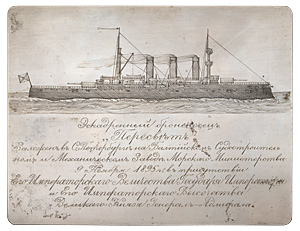 Эскадренный броненосецъ
Пересвѣтъ
Заложенъ въ С.Петербургѣ на Балтійскомъ Судостроитель-
номъ и Механическомъ Заводѣ Морского Министерства
9 Ноября 1895 г. въ присутствіи
Его Императорскаго Величества Государя Императора
и Его Императорскаго Высочества
Великаго Князя Генералъ-Адмирала